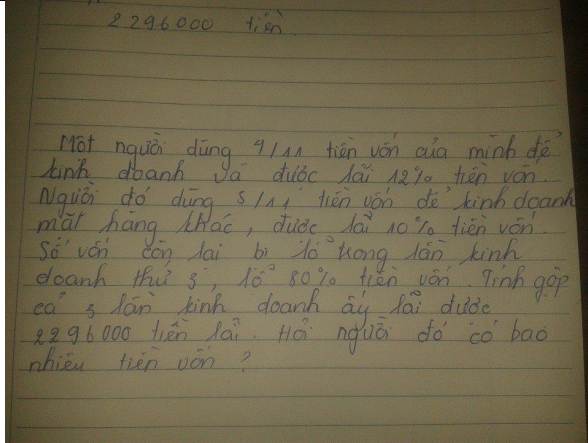 2296000 tiền.
Một người dùng 4/11 tiền vốn của mình để
kinh doanh và được lãi 12% tiền vốn.
Người đó dùng 5/11 tiền vốn để kinh doanh
mặt hàng khác, được lãi 10% tiền vốn.
Số vốn còn lại bị lỗ trong lần kinh
doanh thứ 3, lỗ 80% tiền vốn. Tính gộp
cả 3 lần kinh doanh ấy lãi được
2296000 tiền lãi. Hỏi người đó có bao
nhiêu tiền vốn ?